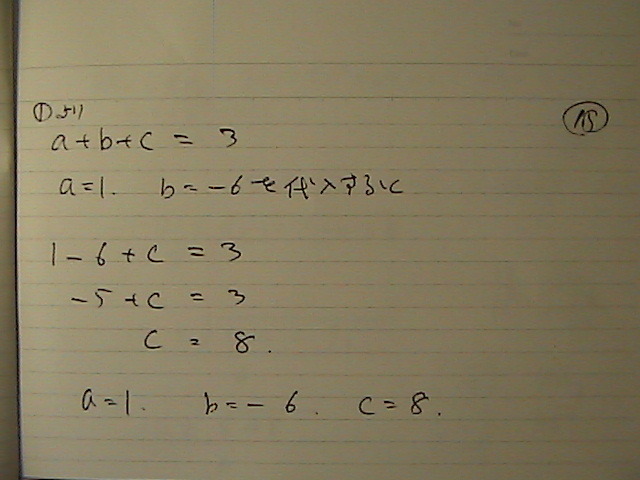 ①より
⑮
a+b+c = 3
a=1. b=-6を代入すると
1-6+c = 3
-5+c = 3
c = 8.
a=1. b=-6. c=8.